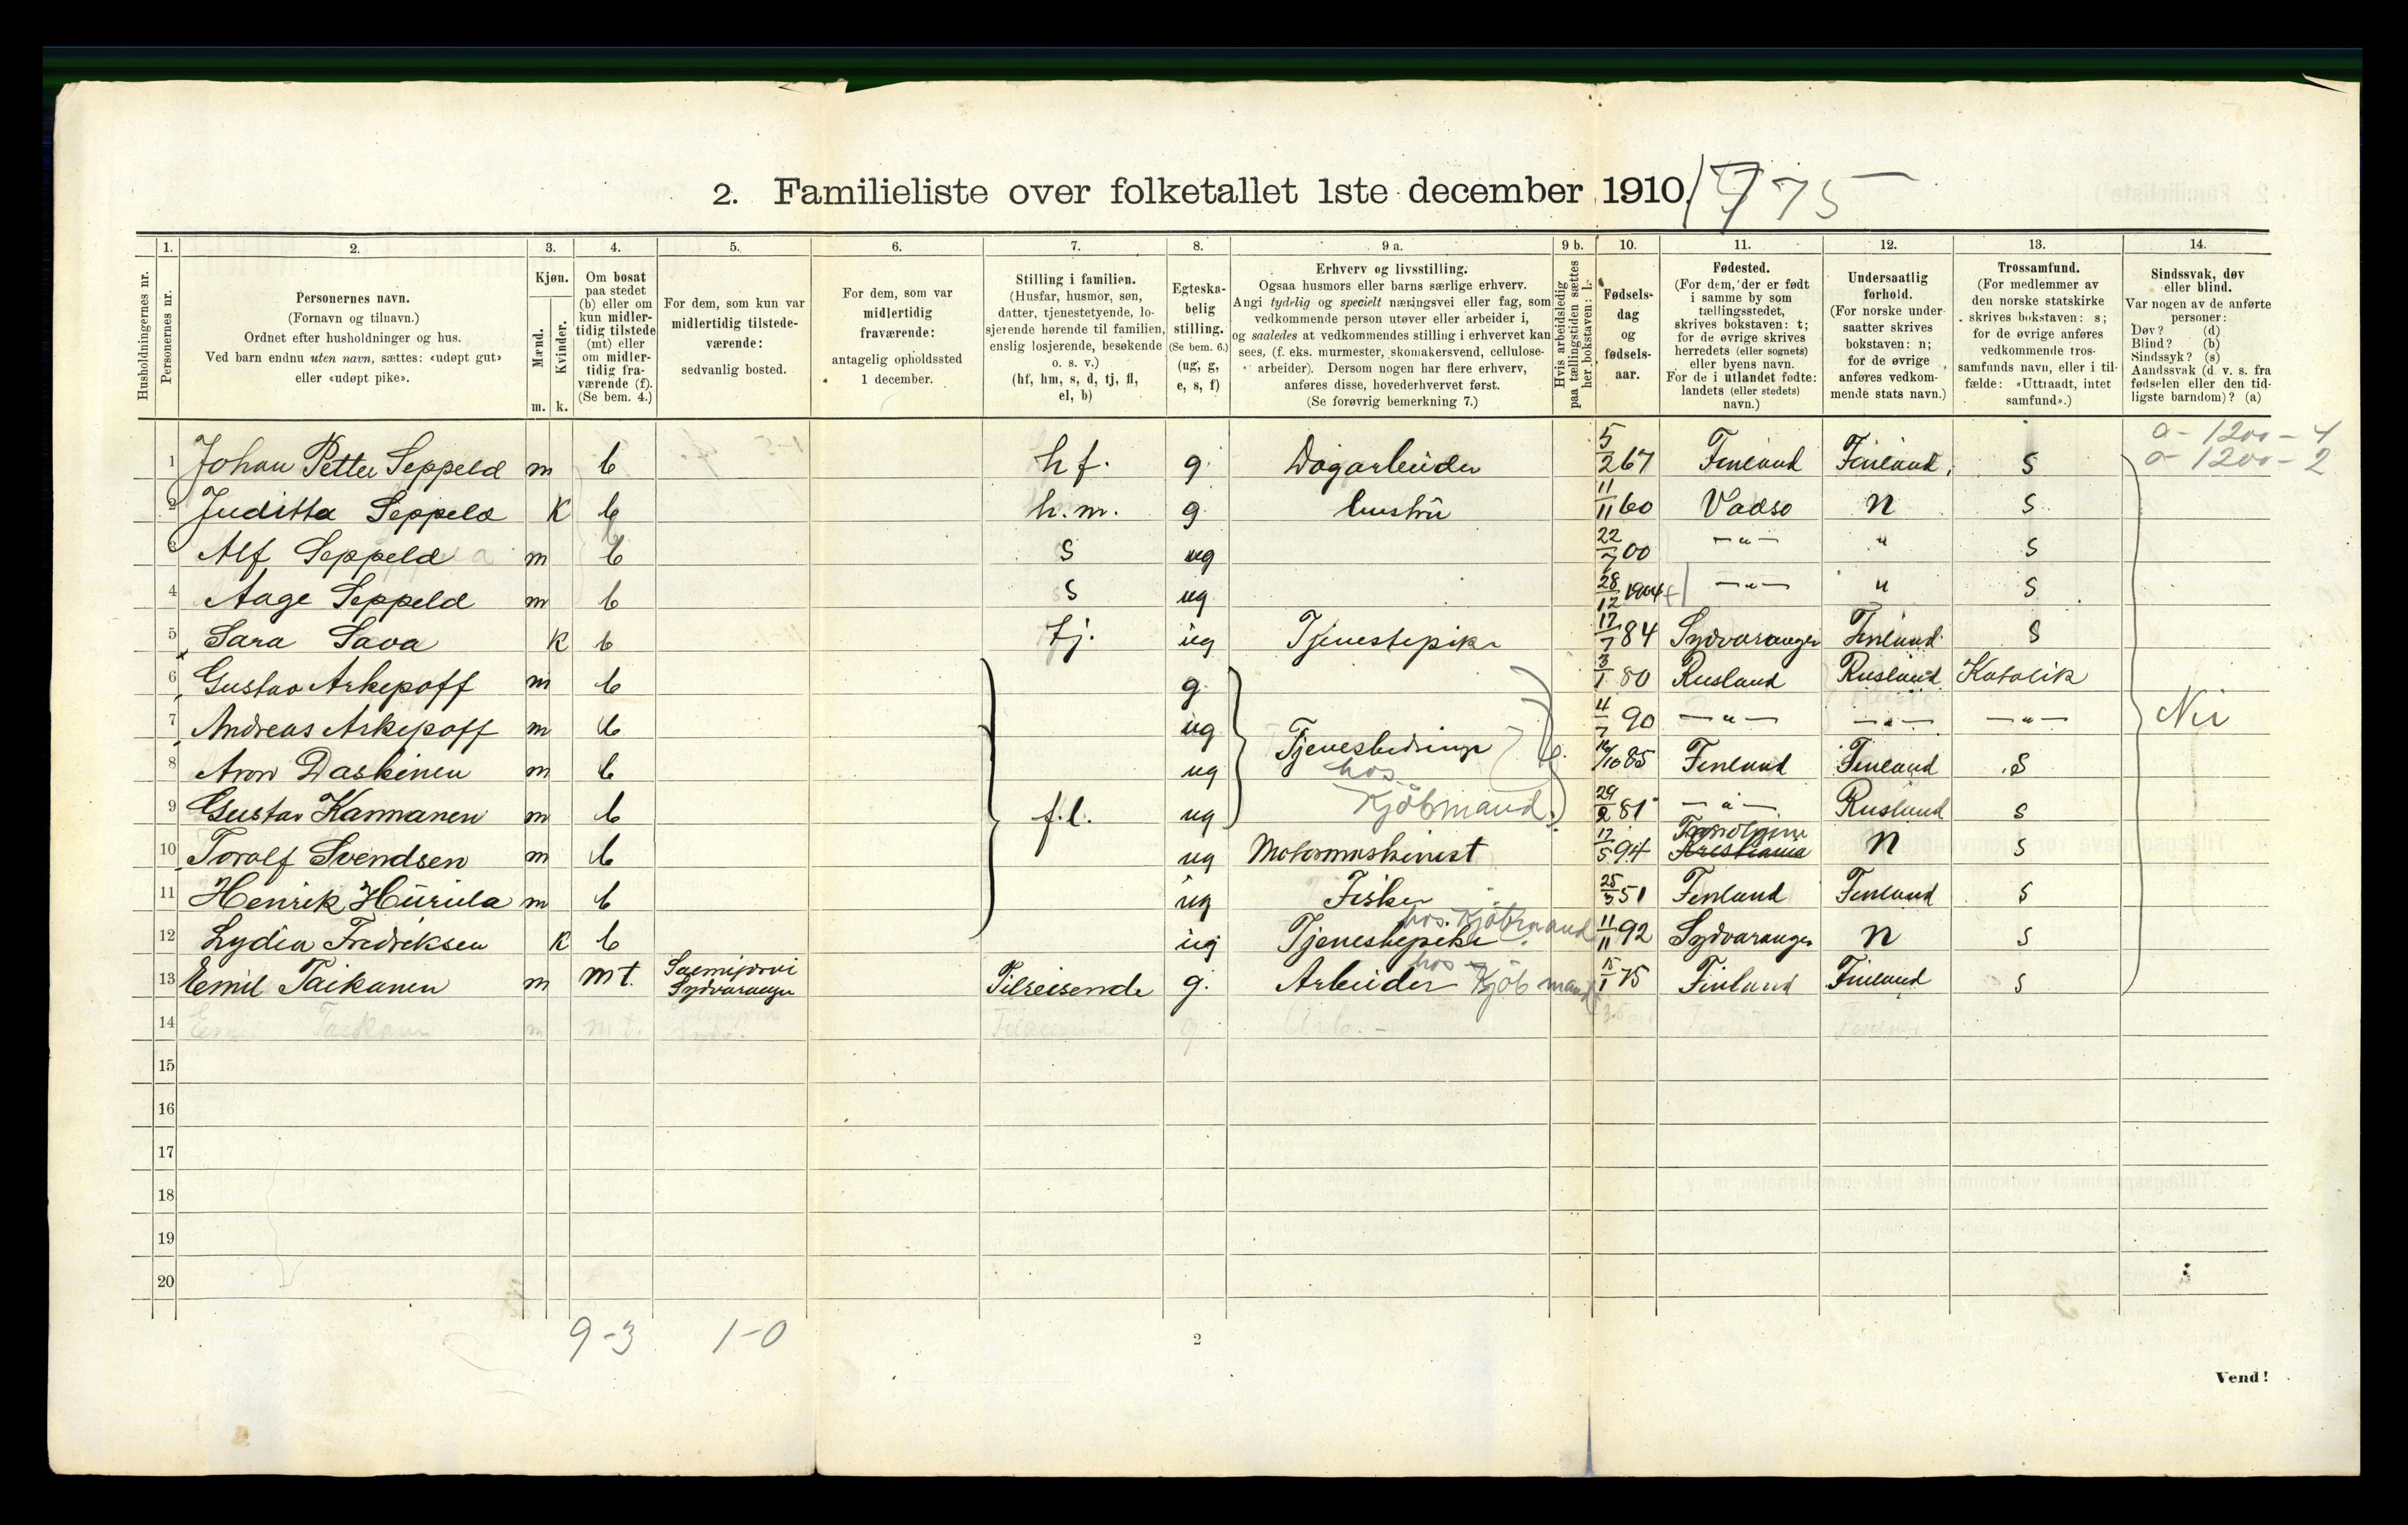 2. Familieliste over folketallet 1ste december 1910. 775
1. 2. 3. 4. 5. 6. 7. 8. 9 a. 9 b. 10. 11. 12. 13. 14.
Husholdningernes nr.
Personernes nr.
Personernes navn.
(Fornavn og tilnavn.)
Ordnet efter husholdninger og hus.
Ved barn endnu uten navn, sættes: «udøpt gut»
eller «udøpt pike».
Kjøn.
Mænd.
Kvinder.
m. k.
Om bosat
paa stedet
(b) eller om
kun midler-
tidig tilstede
(mt) eller
om midler-
tidig fra-
værende (f).
(Se bem. 4.)
For dem, som kun var
midlertidig tilstede-
værende:
sedvanlig bosted.
For dem, som var
midlertidig
fraværende:
antagelig opholdssted
1 december.
Stilling i familien.
(Husfar, husmor, søn,
datter, tjenestetyende, lo-
sjerende hørende til familien,
enslig losjerende, besøkende
o. s. v.)
(hf, hm, s, d, tj, fl,
el, b)
Egteska-
belig
stilling.
(Se bem. 6.)
(ug, g,
e, s, f)
Erhverv og livsstilling.
Ogsaa husmors eller barns særlige erhverv.
Angi tydelig og specielt næringsvei eller fag, som
vedkommende person utøver eller arbeider i,
og saaledes at vedkommendes stilling i erhvervet kan
sees, (f. eks. murmester, skomakersvend, cellulose-
arbeider). Dersom nogen har flere erhverv,
anføres disse, hovederhvervet først.
(Se forøvrig bemerkning 7.)
Hvis arbeidsledig
paa tællingstiden sættes
her bokstaven: l.
Fødsels-
dag
og
fødsels-
aar.
Fødested.
(For dem, der er født
i samme by som
tællingsstedet,
skrives bokstaven: t;
for de øvrige skrives
herredets (eller sognets)
eller byens navn.
For de i utlandet fødte:
landets (eller stedets)
navn.)
Undersaatlig
forhold.
(For norske under-
saatter skrives
bokstaven: n;
for de øvrige
anføres vedkom-
mende stats navn.)
Trossamfund.
(For medlemmer av
den norske statskirke
skrives bokstaven: s;
for de øvrige anføres
vedkommende tros-
samfunds navn, eller i til-
fælde: «Uttraadt, intet
samfund».)
Sindssvak, døv
eller blind.
Var nogen av de anførte
personer:
Døv? (d)
Blind? (b)
Sindssyk? (s)
Aandssvak (d. v. s. fra
fødselen eller den tid-
ligste barndom)? (a)
a - 1200 - 4
a - 1200 - 2
1 Johan Petter Seppelä m b hf. g. Dagarbeider 5/2 67 Finland Finland. s
2 Juditta Seppelä k b h.m. g hustru 11/11 60 Vadsø n s
3 Alf Seppelä m b s ug 22/7 00 — " — " s
4 Aage Seppelä m b s ug 28/12 1904 — " — " s
5 Sara Sava k b tj. ug Tjenestepike 17/7 84 Sydvaranger Finland s
6 Gustav Arkepoff m b g. 3/1 80 Rusland Rusland Katolik
7 Andreas Arkepoff m b ug Tjenestedreng 4/7 90 — " — — " — — " — Nei
8 Aron Daskinen m b ug hos 16/10 85 Finland Finland s
9 Gustav Kannanen m b f.l. ug Kjøbmand 29/2 81 — " — Rusland s
10 Toralf Svendsen m b ug Motormaskinist 17/5 94 Trondhjem Kristiania n s
11 Henrik Hurula m b ug Fisker 25/3 51 Finland Finland s
12 Lydia Fredriksen k b ug Tjenestepike hos Kjøbmand 11/11 92 Sydvaranger n s
13 Emil Taikanen m mt. Salmijarvi Sydvaranger Tilreisende g. Arbeider hos Kjøbmand 15/1 75 Finland Finland s
14 Emil m mt. g Arb. -
15
16
17
18
19
20
9-3 1-0
2
Vend!